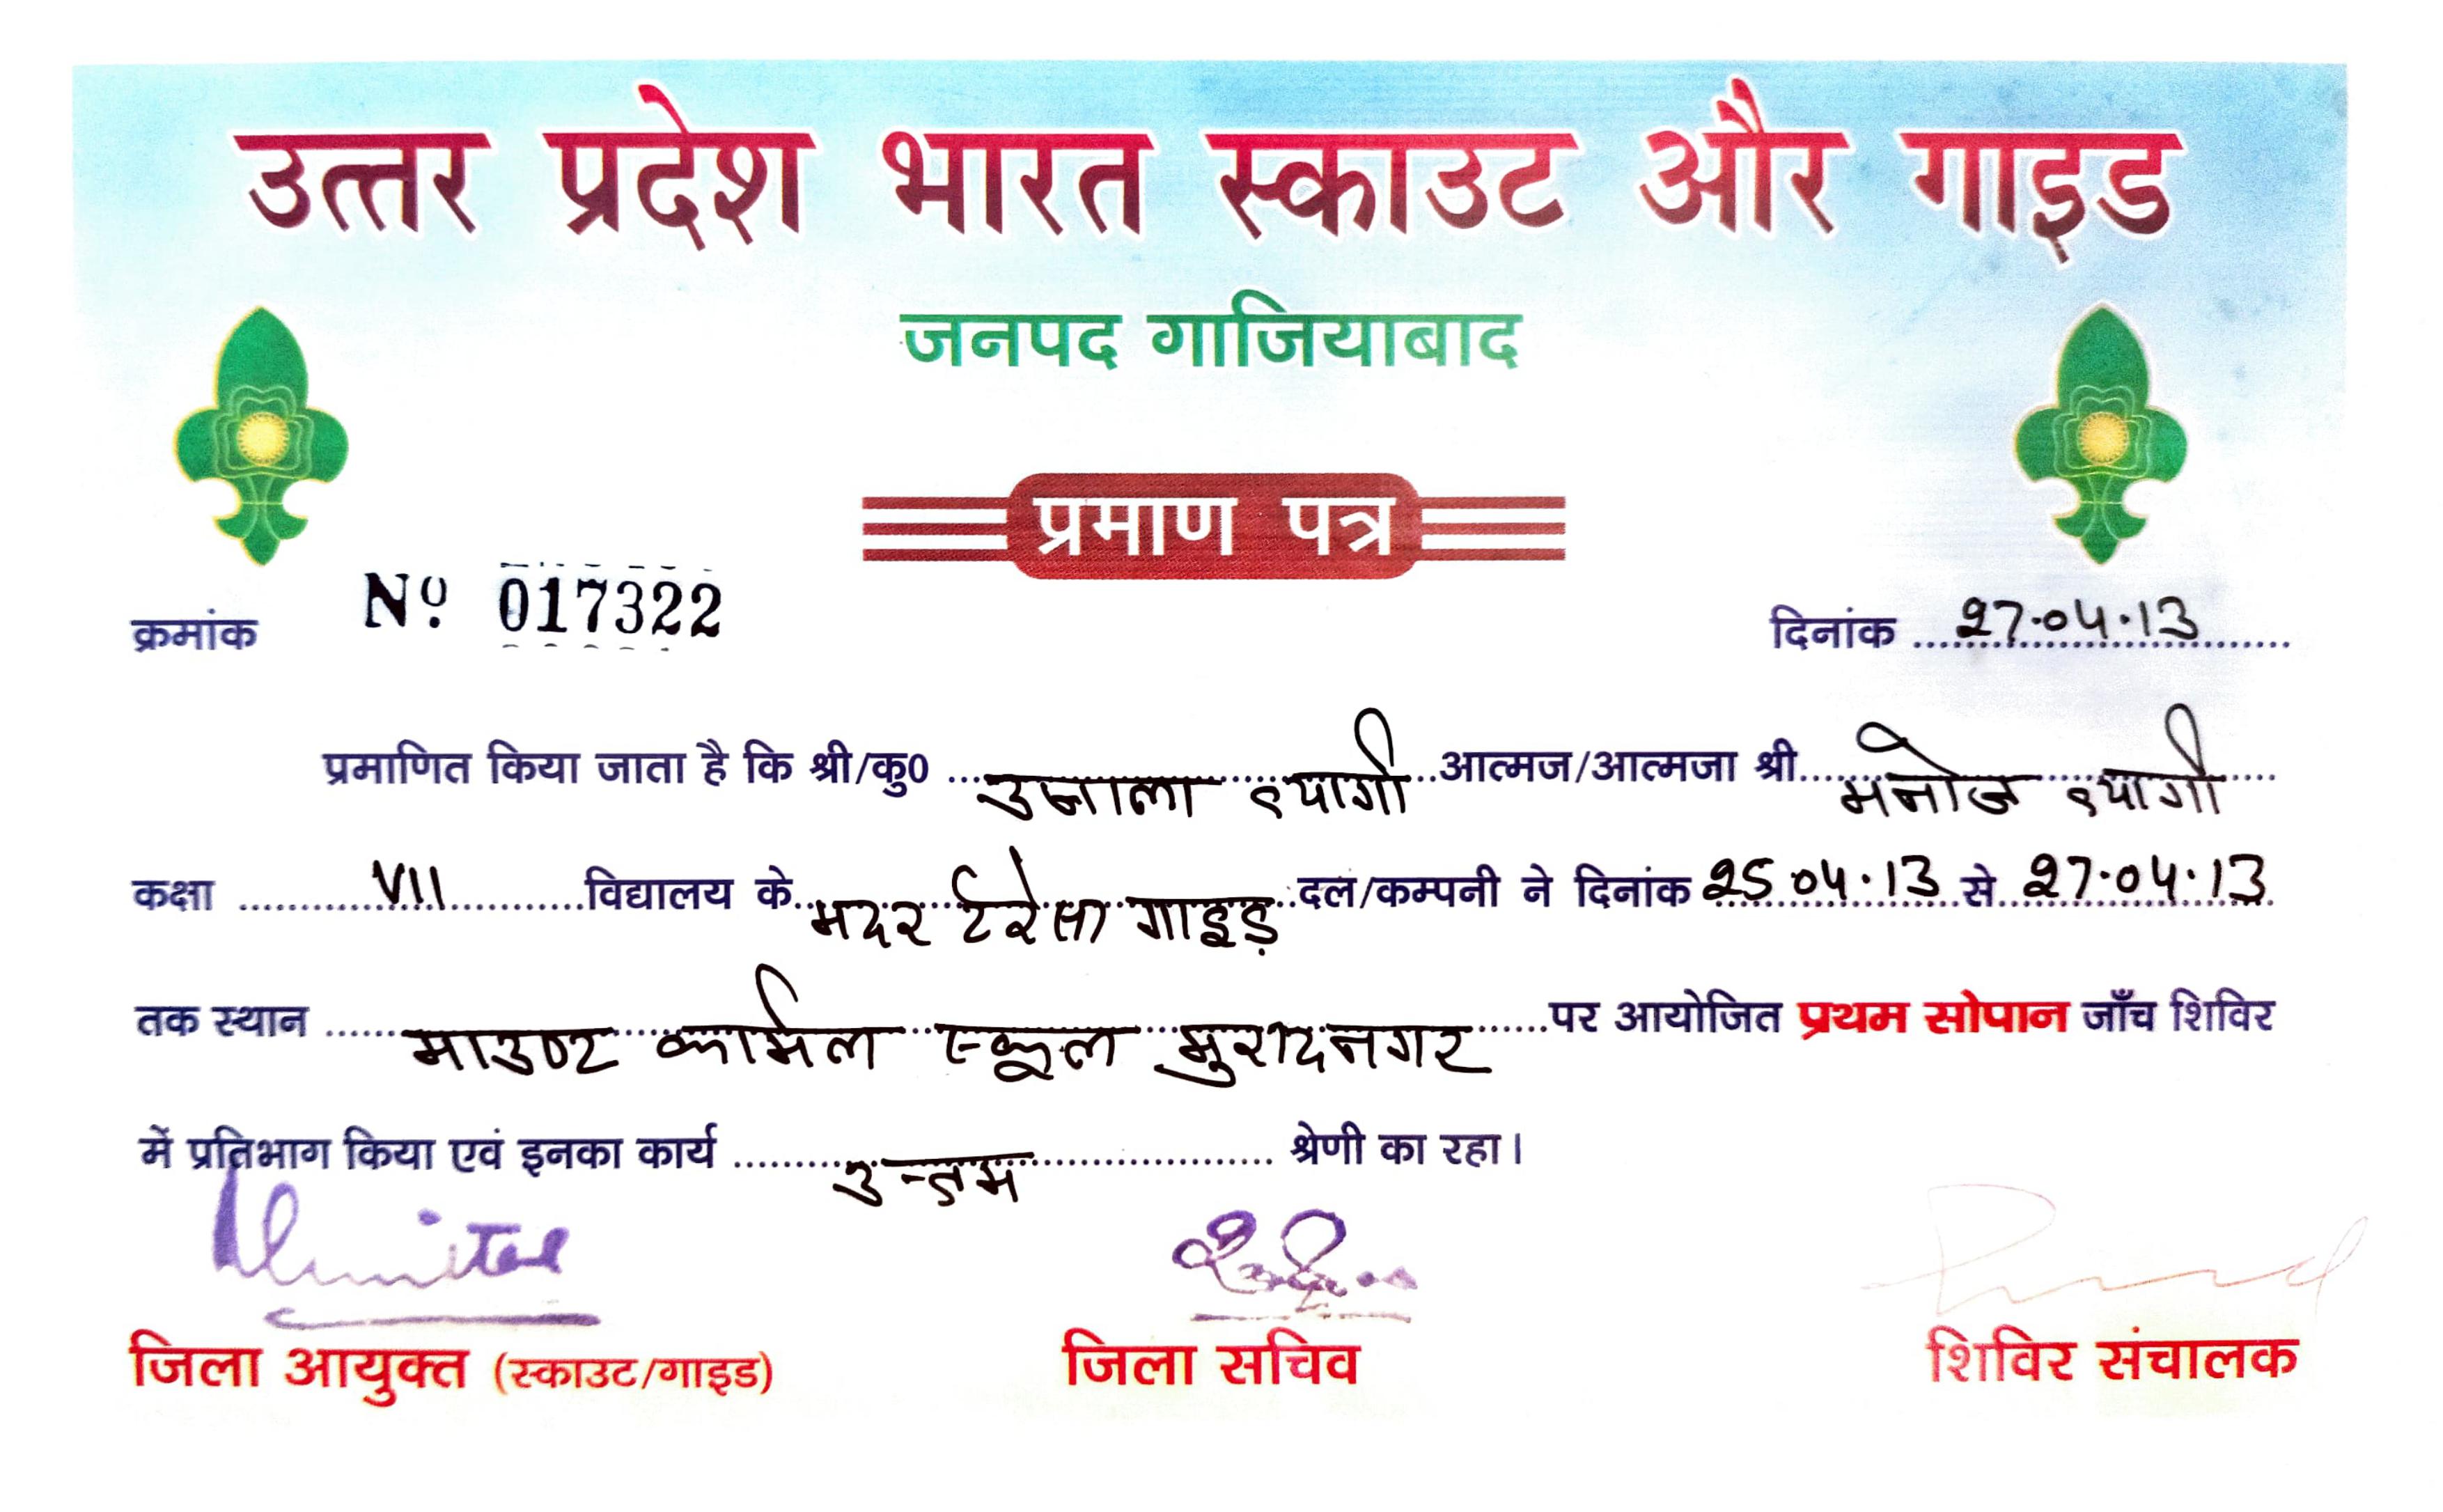 उत्तर प्रदेश भारत स्काउट और गाइड
जनपद गाजियाबाद
प्रमाण पत्र
क्रमांक Nº 017322 दिनांक 27.04.13
प्रमाणित किया जाता है कि श्री/कु0 उजाला त्यागी आत्मज/आत्मजा श्री मनोज त्यागी
कक्षा VII विद्यालय के मदर टेरेसा गाइड़ दल/कम्पनी ने दिनांक 25.04.13 से 27.04.13
तक स्थान माउण्ट कार्मल स्कूल मुरादनगर पर आयोजित प्रथम सोपान जाँच शिविर
में प्रतिभाग किया एवं इनका कार्य उत्तम श्रेणी का रहा।
जिला आयुक्त (स्काउट/गाइड) जिला सचिव शिविर संचालक